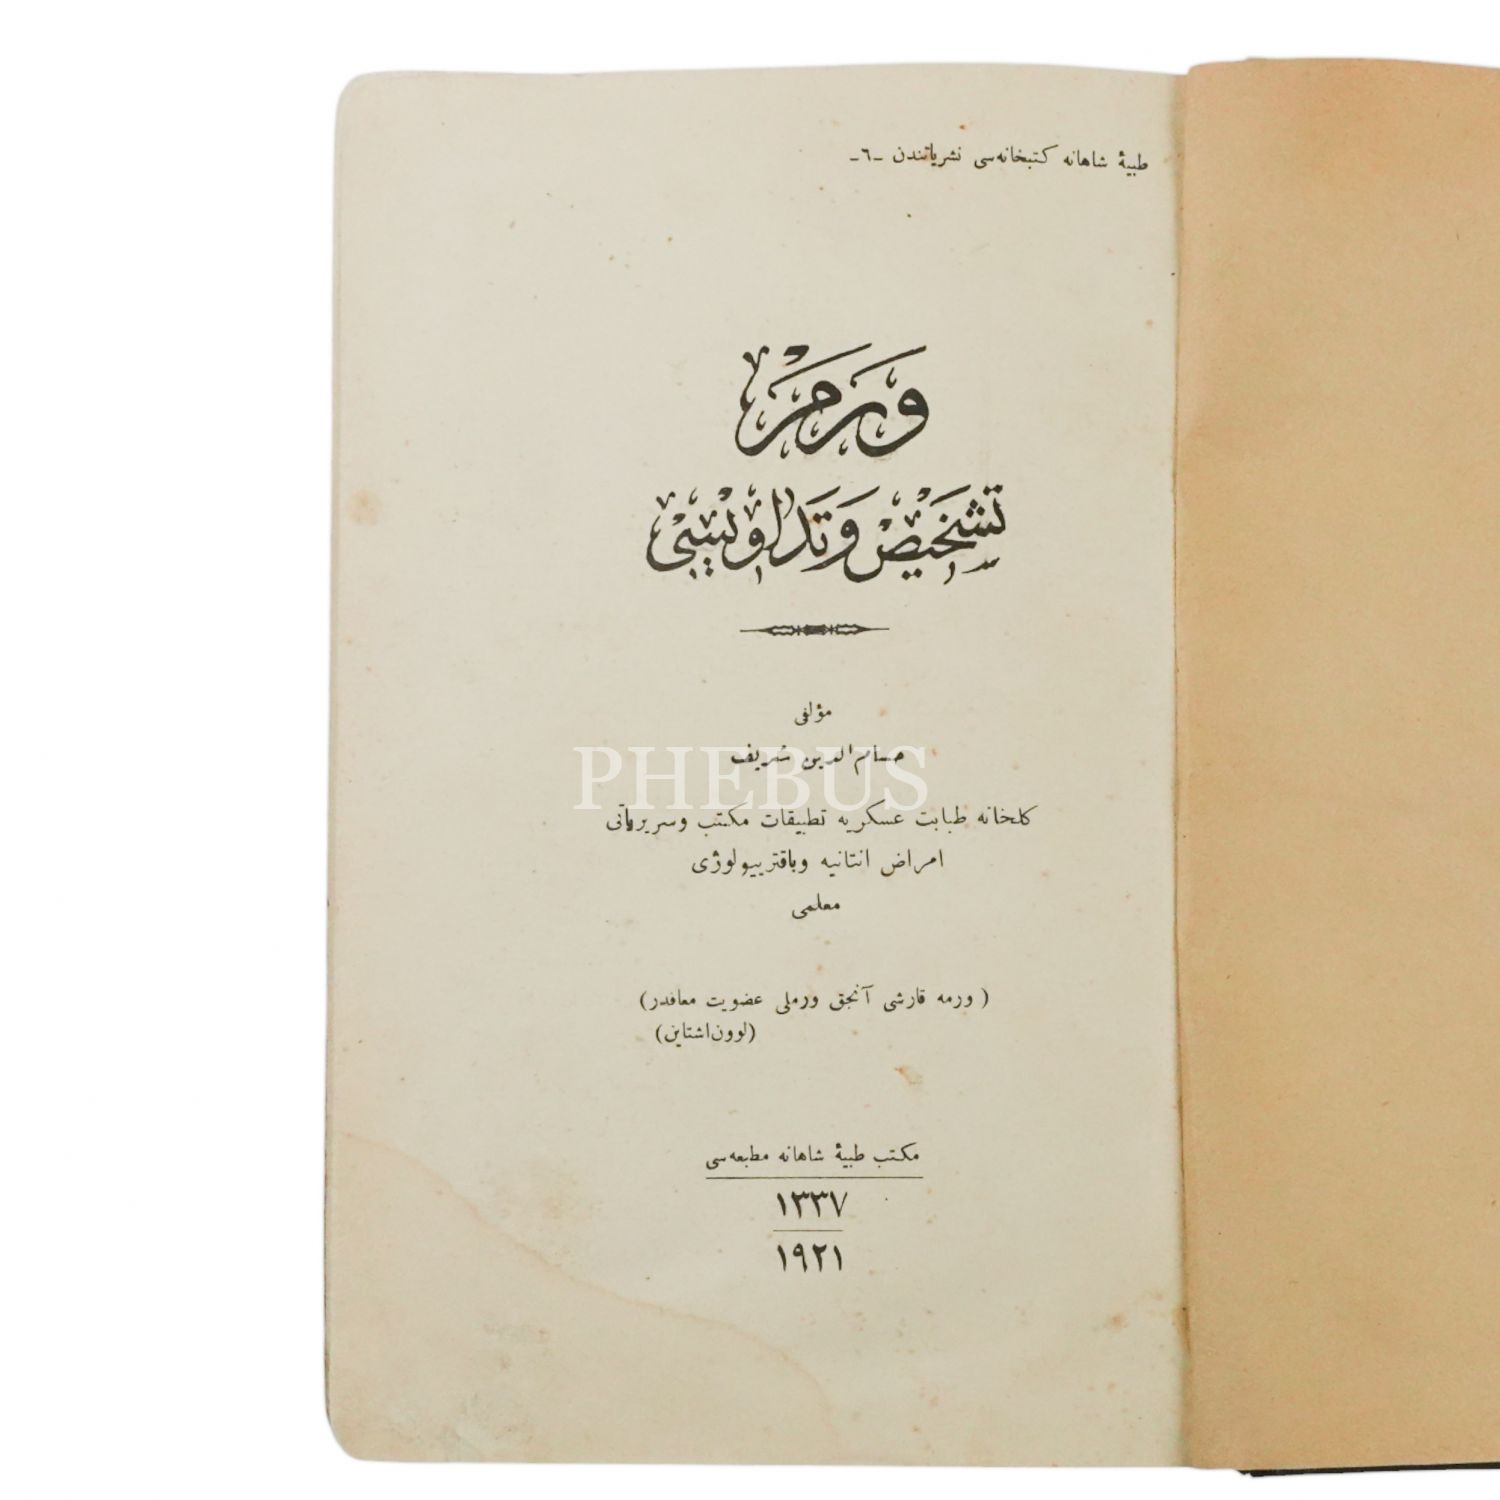 طبیهٔ شاهانه کتبخانه‌سی نشریاتندن ـ٦ـ
ورم
تشخیص وتداویسی
مؤلفی
حسام‌الدین شریف
PHEBUS
کلخانه طبابت عسکریه تطبیقات مکتب وسریریاتی
امراض انتانیه وباقتریولوژی
معلمی
( ورمه قارشی آنجق ورملی عضویت معافدر)
(لوون‌اشتاین)
مکتب طبیهٔ شاهانه مطبعه‌سی
١٣٣٧
١٩٢١